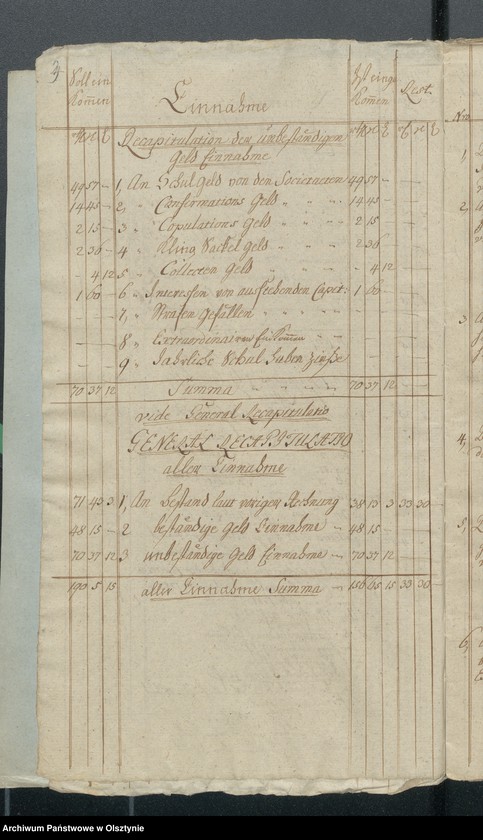 3
Soll ein Kom̅en | Einnahme | Ist einge Kom̅en | Rest.
Recapitulation der unbeständigen
Geld Einnahme
49 57 – 1, An Schulgeld von den Societaeten 49 57 –
14 45 – 2, " Confirmations Geld " " " 14 45 –
2 15 – 3 " Copulations Geld " " " 2 15
2 36 – 4 " Kling Säckel Geld " " " 2 36
– 4 12 5 " Collecten Geld " " " – 4 12
1 60 – 6 " Interessen von ausstehenden Capit: 1 60 –
– – – 7, " Strafen Gefällen " " – – –
– – – 8 " Extraordinairen – – –
– – – 9 " Jährliche Schul – – –
70 37 12 Summa " " " 70 37 12 – – –
vide General Recapitulatio
GENERAL RECAPITULATIO
aller Einnahme
71 43 3 1, An Bestand laut voriger Rechnung 38 13 3 33 30 –
48 15 – 2 beständige Geld Einnahme – 48 15 –
70 37 12 3 unbeständige Geld Einnahme – 70 37 12
190 5 15 aller Einnahme Summa – 156 65 15 33 30 –
1,
2,
3
4,
5,
6,
Archiwum Państwowe w Olsztynie